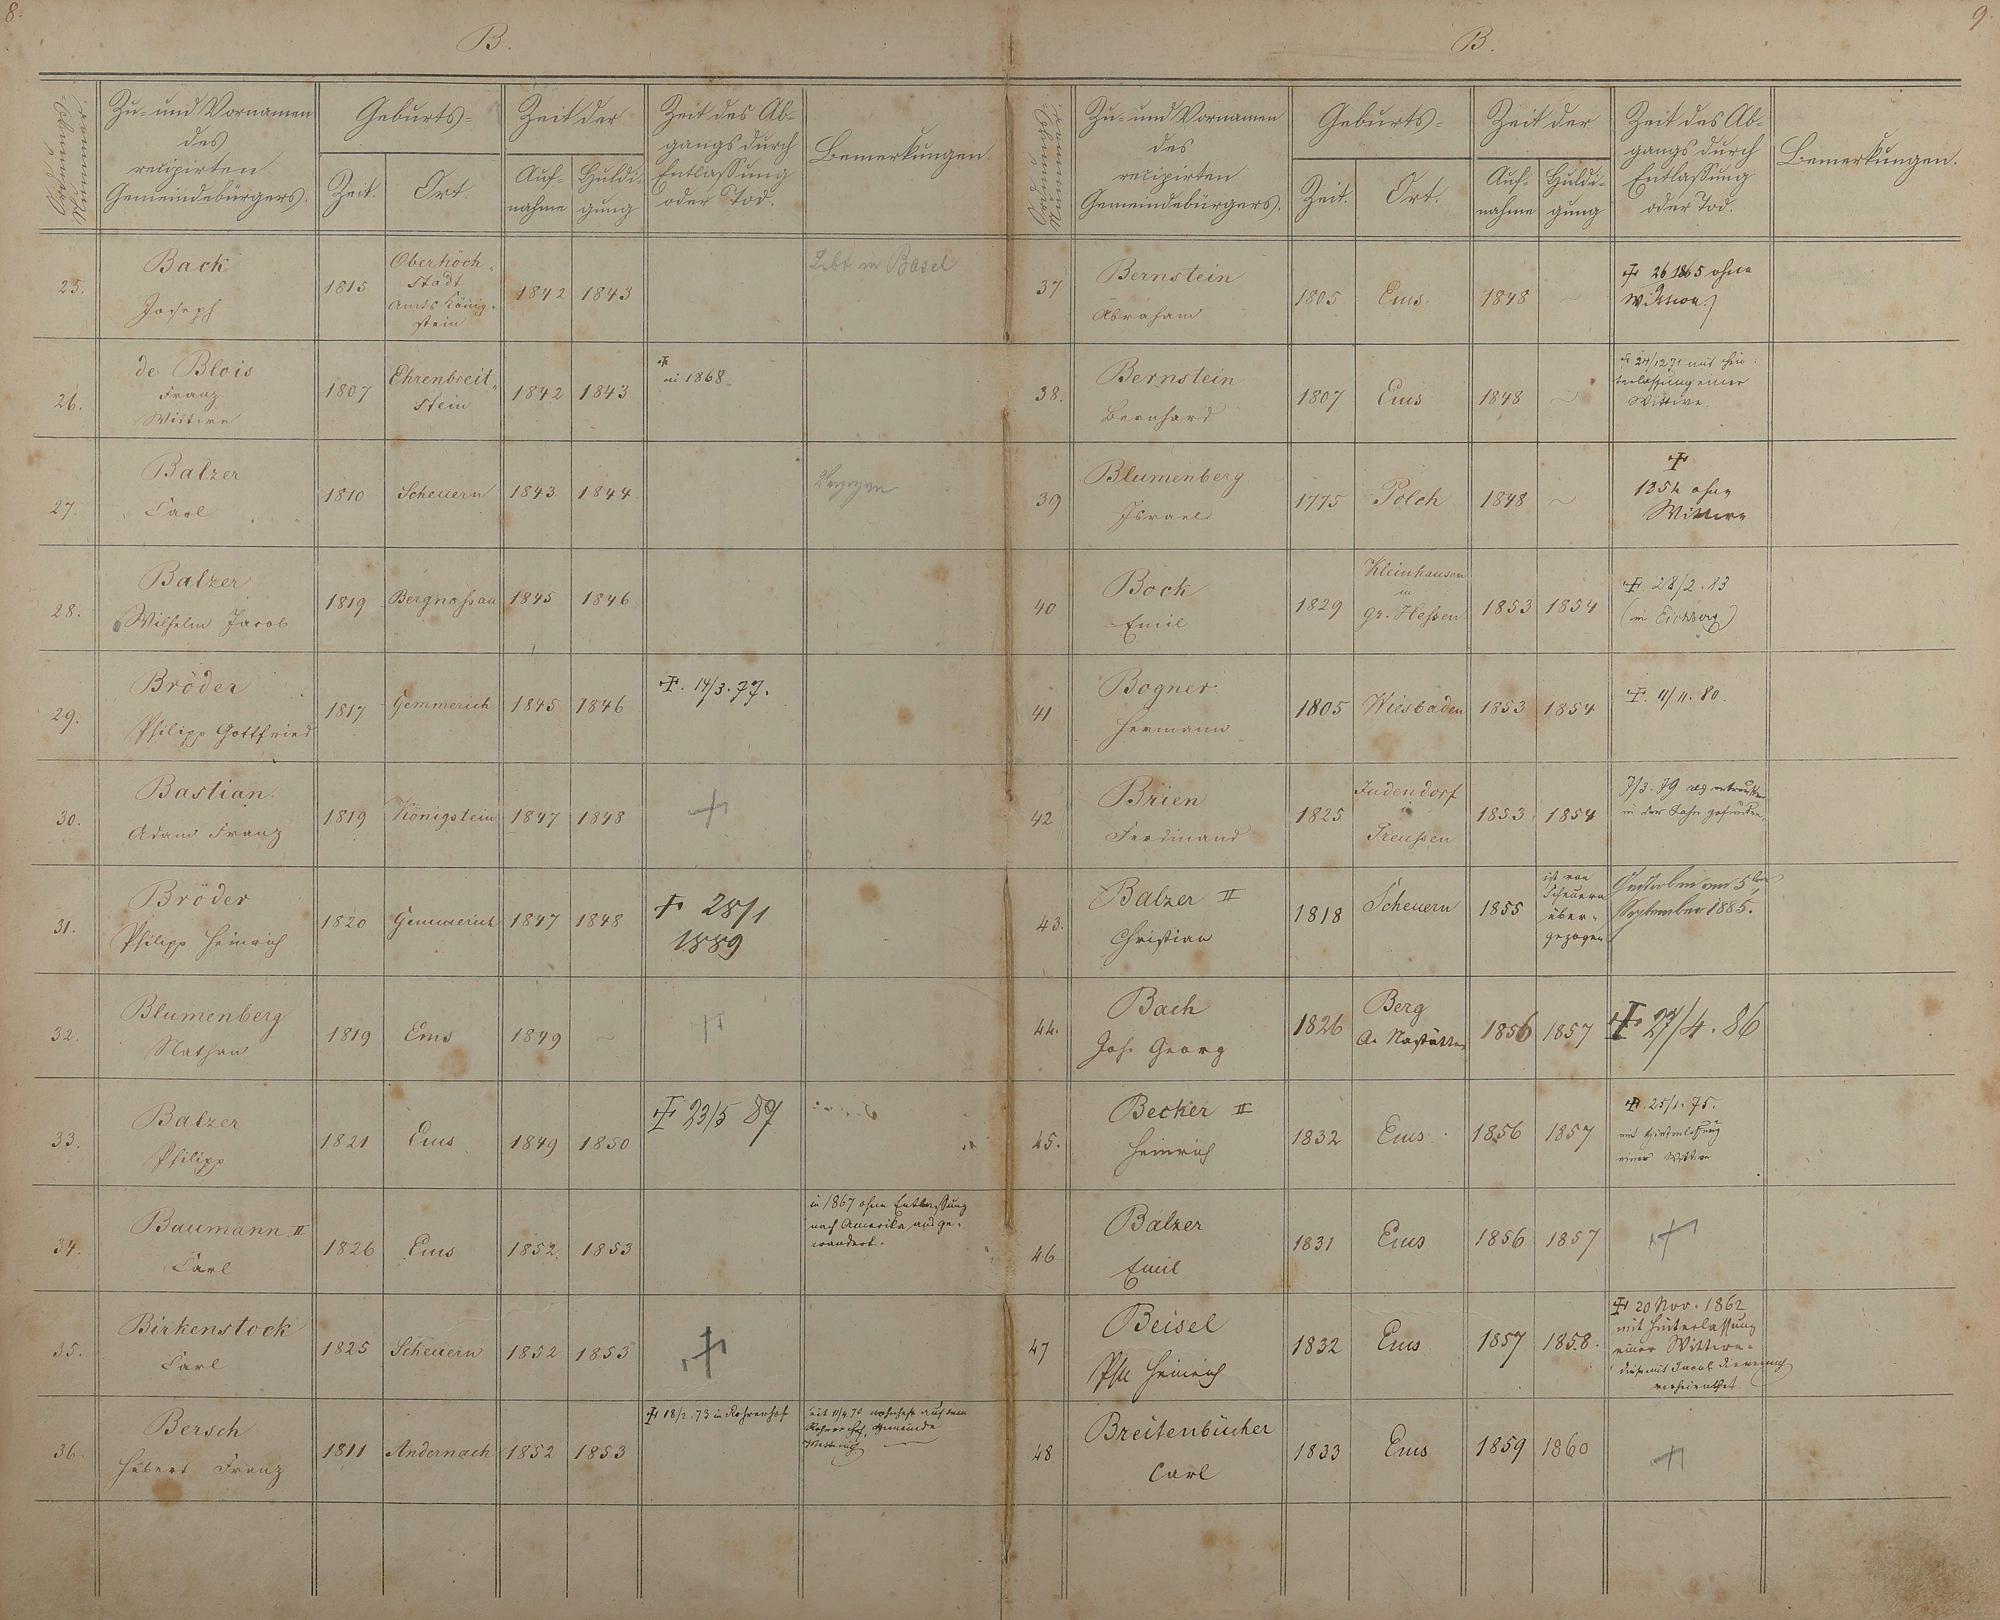 8.
B.
Ordnungs-
Nummer.
Zu- und Vornamen
des
recipirten
Gemeindebürgers.
Geburts-
Zeit.
Ort.
Zeit der
Auf-
nahme
Huldi-
gung
Zeit des Ab-
gangs durch
Entlassung
oder Tod.
Bemerkungen.
25.
Back
Joseph
1815
Oberhöch-
stadt
Amts König-
stein
1842
1843
Lebt in Basel
26.
de Blois
Franz
Wittwe
1807
Ehrenbreit-
stein
1842
1843
‡
in 1868.
27.
Balzer
Carl
1810
Scheuern
1843
1844
28.
Balzer
Wilhelm Jacob
1819
Bergnassau
1845
1846
29.
Bröder
Philipp Gottfried
1817
Gemmerich
1845
1846
‡. 14/3. 77.
30.
Bastian.
Adam Franz
1819
Königstein
1847
1848
+
31.
Bröder
Philipp Heinrich
1820
Gemmerich
1847
1848
+ 28/1
1889
32.
Blumenberg
Nathan
1819
Ems
1849
~
+
33.
Balzer
Philipp
1821
Ems
1849
1850
‡ 23/5 87
34.
Baumann II
Carl
1826
Ems
1852
1853
in 1867 ohne Entlassung
nach Amerika ausge-
wandert.
35.
Birkenstock
Carl
1825
Scheuern
1852
1853
+
36.
Bersch
Hubert Franz
1811
Andernach
1852
1853
‡ 18/2. 73 in Rohrerhof
seit 11/4 70 wohnhaft auf dem
Rohrerhof, Gemeinde
9.
B.
Ordnungs-
Nummer.
Zu- und Vornamen
des
recipirten
Gemeindebürgers.
Geburts-
Zeit.
Ort.
Zeit der
Auf-
nahme
Huldi-
gung
Zeit des Ab-
gangs durch
Entlassung
oder Tod.
Bemerkungen.
37
Bernstein
Abraham
1805
Ems
1848
~
‡ 26 1865 ohne
38.
Bernstein
Bernhard
1807
Ems
1848
~
‡ 24/12 71 mit Hin-
terlassung einer
Wittwe.
39
Blumenberg
Israel
1775
Polch
1848
~
‡
1854 ohne
Wittwe
40
Bock
Emil
1829
Kleinhausen
in
Gr. Hessen
1853
1854
‡. 28/2. 83
(in Eichberg)
41
Bogner
Hermann
1805
Wiesbaden
1853
1854
‡. 11/11. 80.
42
Brien
Ferdinand
1825
Judendorf
in
Preussen
1853
1854
7/3. 79 als ertrunken
in der Lahn gefunden.
43.
Balzer II
Christian
1818
Scheuern
1855
ist von
Scheuern
über-
gezogen
Gestorben am 5ten
September 1885.
44.
Bach
Joh. Georg
1826
Berg
A. Nastätten
1856
1857
‡ 27/4. 86
45.
Becker II
Heinrich
1832
Ems
1856
1857
‡ 25/1. 75.
mit Hinterlassung
einer Wittwe
46
Balzer
Emil
1831
Ems
1856
1857
+
47
Beisel
Phil Heinrich
1832
Ems
1857
1858.
‡ 20 Nov. 1862
mit Hinterlassung
einer Wittwe.
diese mit Jacob
verheirathet
48
Breitenbücher
Carl
1833
Ems
1859
1860
+